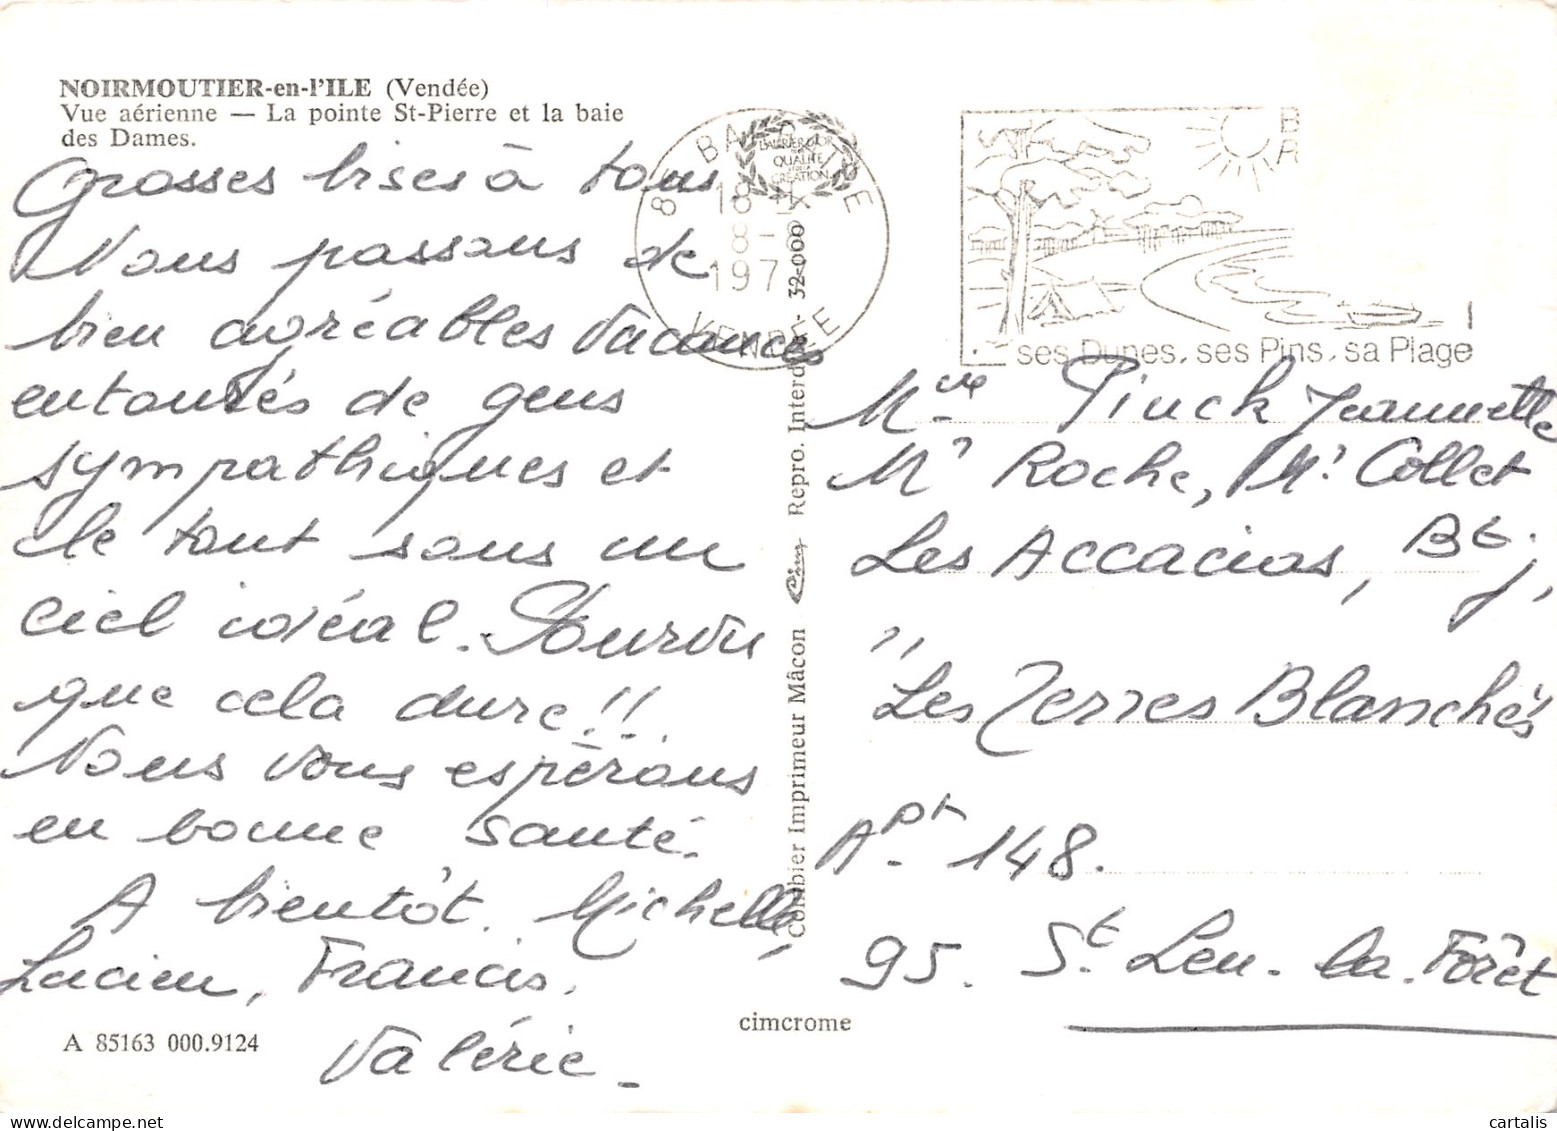 NOIRMOUTIER-en-l'ILE (Vendée)
Vue aérienne — La pointe St-Pierre et la baie
des Dames.
Grosses bises à tous
Nous passons de
bien agréables vacances
entourés de gens
sympathiques et
le tout sous un
ciel idéal. Pourvu
que cela dure!!
Nous vous espèrons
en bonne santé.
A bientôt. Michelle,
Lucien, Francis,
Valérie.
A 85163 000.9124
LAURIER D'OR
QUALITÉ
CRÉATION
18 -
8 -
197
VENDÉE
Combier Imprimeur Mâcon Cim Repro. Interdite - 32-000
cimcrome
B
R
ses Dunes, ses Pins, sa Plage
Mve Pinck Jeannette
Mr Roche, Mr Collet
Les Accacias, Bt. J,
"Les Terres Blanchés"
Apt. 148.
95. St. Leu-la-Forêt
cartalis